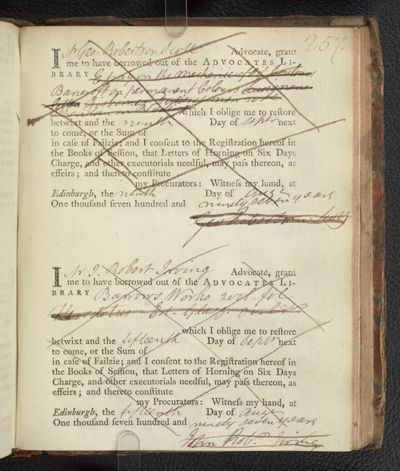 257.
I Mr Geo. Robertson Scott Advocate, grant
me to have borrowed out of the ADVOCATES LI-
BRARY
Bancroft on permanent Colours
which I oblige me to restore
betwixt and the ninth Day of Septr next
to come, or the Sum of
in case of Failzie; and I consent to the Registration hereof in
the Books of Session, that Letters of Horning on Six Days
Charge, and other executorials needful, may pass thereon, as
effeirs; and thereto constitute
my Procurators: Witness my hand, at
Edinburgh, the ninth Day of Augt
One thousand seven hundred and ninety seven years
Geo Robertson Scott
I Mr J. Robert Irving Advocate, grant
me to have borrowed out of the ADVOCATES LI-
BRARY Barrows Works, 2 vol. fol
which I oblige me to restore
betwixt and the fifteenth Day of Septr next
to come, or the Sum of
in case of Failzie; and I consent to the Registration hereof in
the Books of Session, that Letters of Horning on Six Days
Charge, and other executorials needful, may pass thereon, as
effeirs; and thereto constitute
my Procurators: Witness my hand, at
Edinburgh, the fifteenth Day of Augt
One thousand seven hundred and ninety seven years
John Robt. Irving